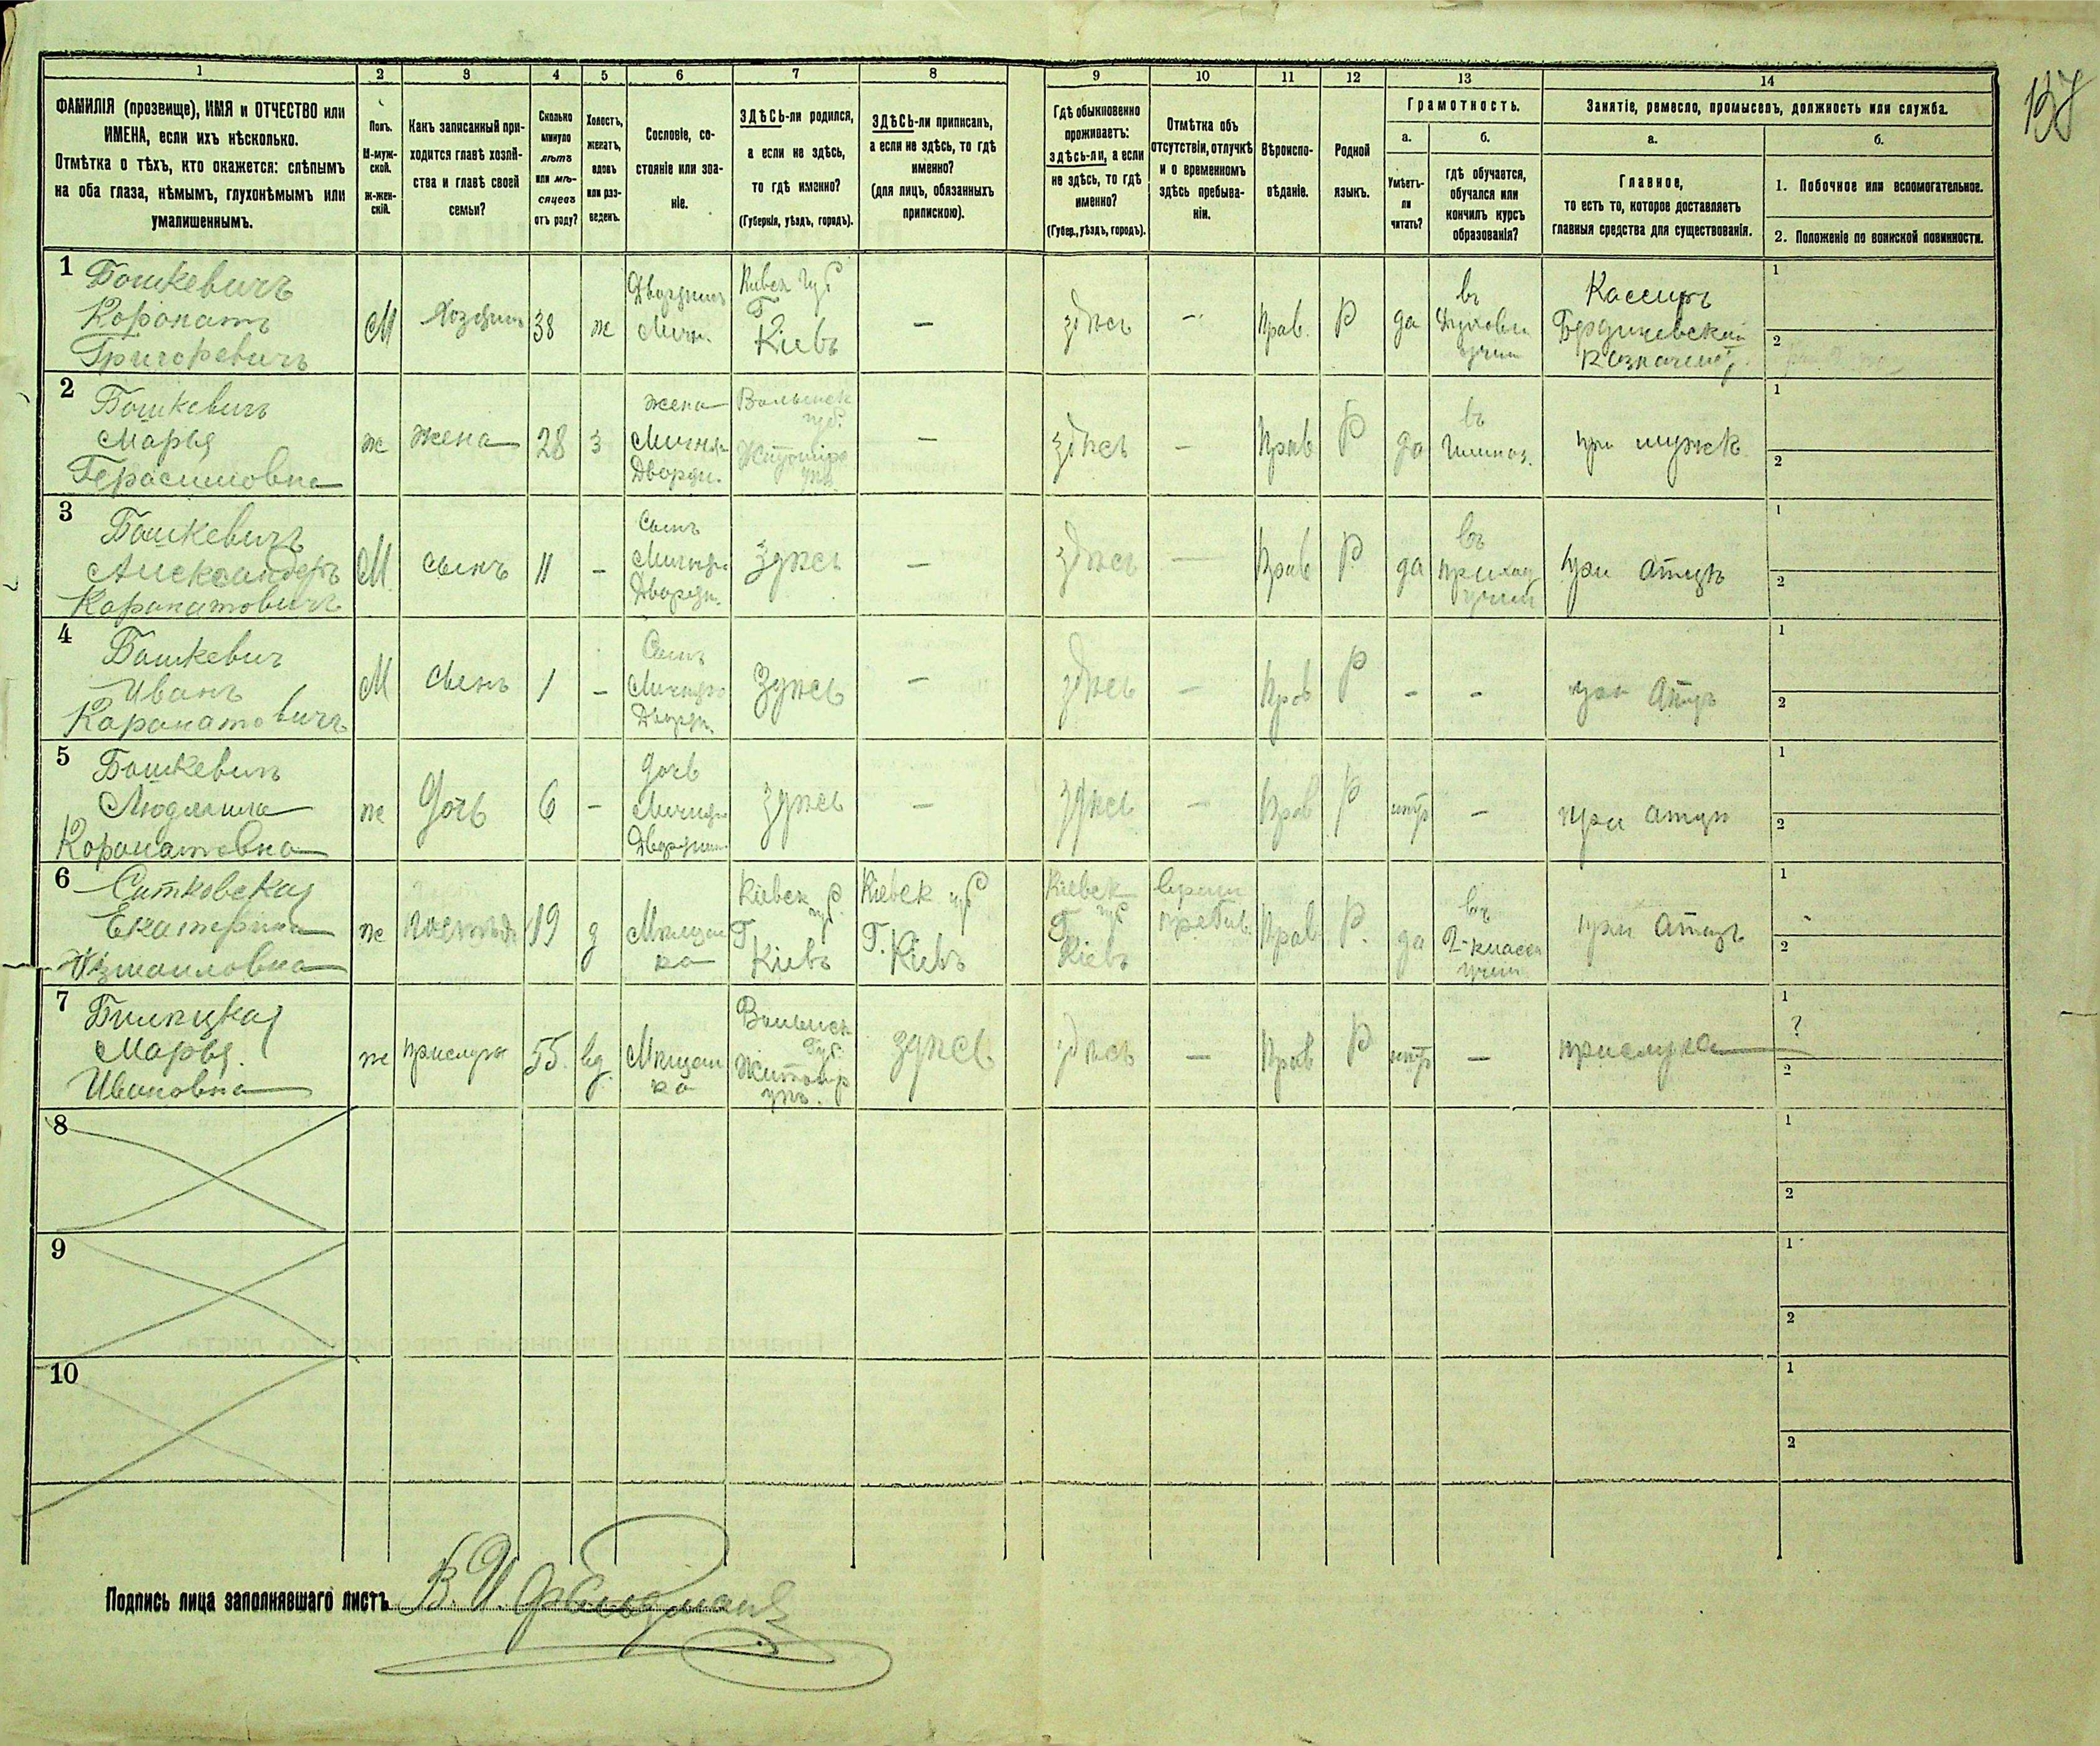 137
1
2
3
4
5
6
7
8
9
10
11
12
13
14
ФАМИЛІЯ (прозвище), ИМЯ и ОТЧЕСТВО или
ИМЕНА, если ихъ нѣсколько.
Отмѣтка о тѣхъ, кто окажется: слѣпымъ
на оба глаза, нѣмымъ, глухонѣмымъ или
умалишеннымъ.
Полъ.
М-муж-
ской.
ж-жен-
скій.
Какъ записанный при-
ходится главѣ хозяй-
ства и главѣ своей
семьи?
Сколько
минуло
лѣтъ
или мѣ-
сяцевъ
отъ роду?
Холостъ,
женатъ,
вдовъ
или раз-
веденъ.
Сословіе, со-
стояніе или зва-
ніе.
ЗДѢСЬ-ли родился,
а если не здѣсь,
то гдѣ именно?
(Губернія, уѣздъ, городъ).
ЗДѢСЬ-ли приписанъ,
а если не здѣсь, то гдѣ
именно?
(для лицъ, обязанныхъ
припискою).
Гдѣ обыкновенно
проживаетъ:
здѣсь-ли, а если
не здѣсь, то гдѣ
именно?
(Губер., уѣздъ, городъ).
Отмѣтка объ
отсутствіи, отлучкѣ
и о временномъ
здѣсь пребыва-
ніи.
Вѣроиспо-
вѣданіе.
Родной
языкъ.
Грамотность.
а.
Умѣетъ-
ли
читать?
б.
гдѣ обучается,
обучался или
кончилъ курсъ
образованія?
Занятіе, ремесло, промыселъ, должность или служба.
а.
Главное,
то есть то, которое доставляетъ
главныя средства для существованія.
б.
1. Побочное или вспомогательное.
2. Положеніе по воинской повинности.
1
Бошкевичъ
Коронатъ
Григоревичъ
М
Хозяинъ
38
ж
Дворянинъ
Личн.
Киевск губ
Г.
Кіевъ
—
здѣсь
—
Прав.
Р
да
въ
Духовн
учил
Кассиръ
Бердичевскаи
Казначей
1
2
2
Бошкевичъ
Марья
Герасимовна
ж
жена
28
з
жена
Личн.
Дворян.
Волынск
губ.
Житомир
уѣз.
—
здѣсь
—
Прав
Р
да
въ
Гимназ.
при мужѣ
1
2
3
Бошкевичъ
Александръ
Коронатовичъ
М
сынъ
11
—
Сынъ
Личн.
Дворян.
Здѣсь
—
здѣсь
—
Прав
Р
да
въ
приход
учил
при атцѣ
1
2
4
Бошкевич
Иванъ
Коронатовичъ
М
сынъ
1
—
Сынъ
Личн.
Дворян.
Здѣсь
—
здѣсь
—
Прав
Р
—
—
при атцѣ
1
2
5
Бошкевичъ
Людмила
Коронатовна
ж
Дочь
6
—
дочь
Личн.
Дворян.
здѣсь
—
здѣсь
—
Прав
Р
нѣтъ
—
при атцѣ
1
2
6
Ситковская
Екатерина
Измаиловна
ж
19
д
Мѣщан
ка
Кіевск губ.
Г.
Кіевъ
Кіевск губ
Г.
Кіевъ
Кіевск
губ
Г
Кіевъ
врем
пребыв
Прав
Р.
да
въ
2-класс
учил
при атцѣ
1
2
7
Марья
Ивановна
ж
прислуга
55.
вд
Мѣщан
ка
Волынск
Губ.
Житомир
уѣз.
здѣсь
здѣсь
—
Прав
Р
нѣтъ
—
прислуга
1
?
2
8
1
2
9
1
2
10
1
2
Подпись лица заполнявшаго листъ В. И. Фельдманъ